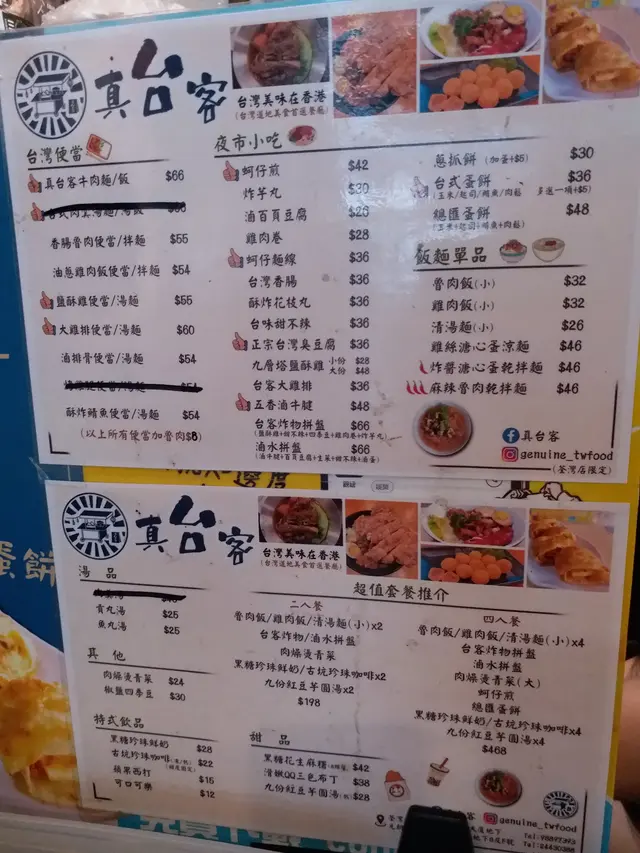 真台客
台灣美味在香港
(台灣道地美食首選餐廳)
台灣便當
真台客牛肉麵/飯 $66
香腸魯肉便當/拌麵 $55
油蔥雞肉飯便當/拌麵 $54
鹽酥雞便當/湯麵 $55
大雞排便當/湯麵 $60
滷排骨便當/湯麵 $54
酥炸鯖魚便當/湯麵 $54
(以上所有便當加魯肉$8)
夜市小吃
蚵仔煎 $42
炸芋丸 $30
滷百頁豆腐 $26
雞肉卷 $28
蚵仔麵線 $36
台灣香腸 $36
酥炸花枝丸 $36
台味甜不辣 $36
正宗台灣臭豆腐 $36
九層塔鹽酥雞 小份 $28
大份 $48
台客大雞排 $36
五香滷牛腱 $48
台客炸物拼盤 $66
(鹽酥雞+甜不辣+四季豆+雞肉卷+炸芋丸)
滷水拼盤 $66
(滷牛腱+百頁豆腐+生菜+甜不辣+滷蛋)
蔥抓餅 (加蛋+$5) $30
台式蛋餅 $36
(玉米/起司/鮪魚/肉鬆) 多選一項+$5)
總匯蛋餅 $48
(玉米+起司+鮪魚+肉鬆)
飯麵單品
魯肉飯(小) $32
雞肉飯(小) $32
清湯麵(小) $26
雞絲溏心蛋涼麵 $46
炸醬溏心蛋乾拌麵 $46
麻辣魯肉乾拌麵 $46
真台客
genuine_twfood
(荃灣店限定)
蛋餅
真台客
台灣美味在香港
(台灣道地美食首選餐廳)
湯品
貢丸湯 $25
魚丸湯 $25
其他
肉燥燙青菜 $24
椒鹽四季豆 $30
特式飲品
黑糖珍珠鮮奶 $28
古坑珍珠咖啡 $22
蘋果西打 $15
可口可樂 $12
超值套餐推介
二人餐
魯肉飯/雞肉飯/清湯麵(小)x2
台客炸物/滷水拼盤
肉燥燙青菜
黑糖珍珠鮮奶/古坑珍珠咖啡x2
九份紅豆芋圓湯x2
$198
四人餐
魯肉飯/雞肉飯/清湯麵(小)x4
台客炸物拼盤
滷水拼盤
肉燥燙青菜(大)
蚵仔煎
總匯蛋餅
黑糖珍珠鮮奶/古坑珍珠咖啡x4
九份紅豆芋圓湯x4
$468
甜品
黑糖花生麻糬 $42
滑嫩QQ三色布丁 $38
九份紅豆芋圓湯 $28
genuine_twfood